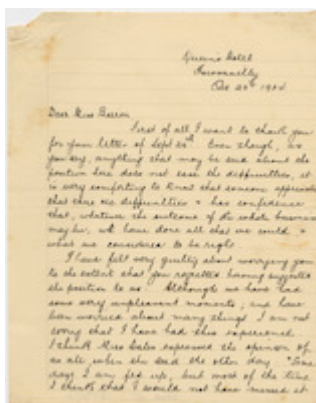 Queens Hotel
Oct 24th 1904
Dear Miss Barron
First of all I want to thank you
for your letter of Sept 25th Even though, as
you say, anything that may be said about the
position here does not ease the difficulties, it
is very comforting to know that someone appreciates
that there are difficulties & has confidence
that, whatever the outcome of the whole business
may be, we have done all that we could &
what we considered to be right.
I have felt very guilty about worrying you
to the extent that you regretted having suggested
the position to us. Although we have had
some very unpleasant moments, and have
been worried about many things I am not
sorry that I have had this experience.
I think Miss expressed the opinion of
us all when she said the other day "Some
days I am fed up, but most of the time
I think that I would not have missed it